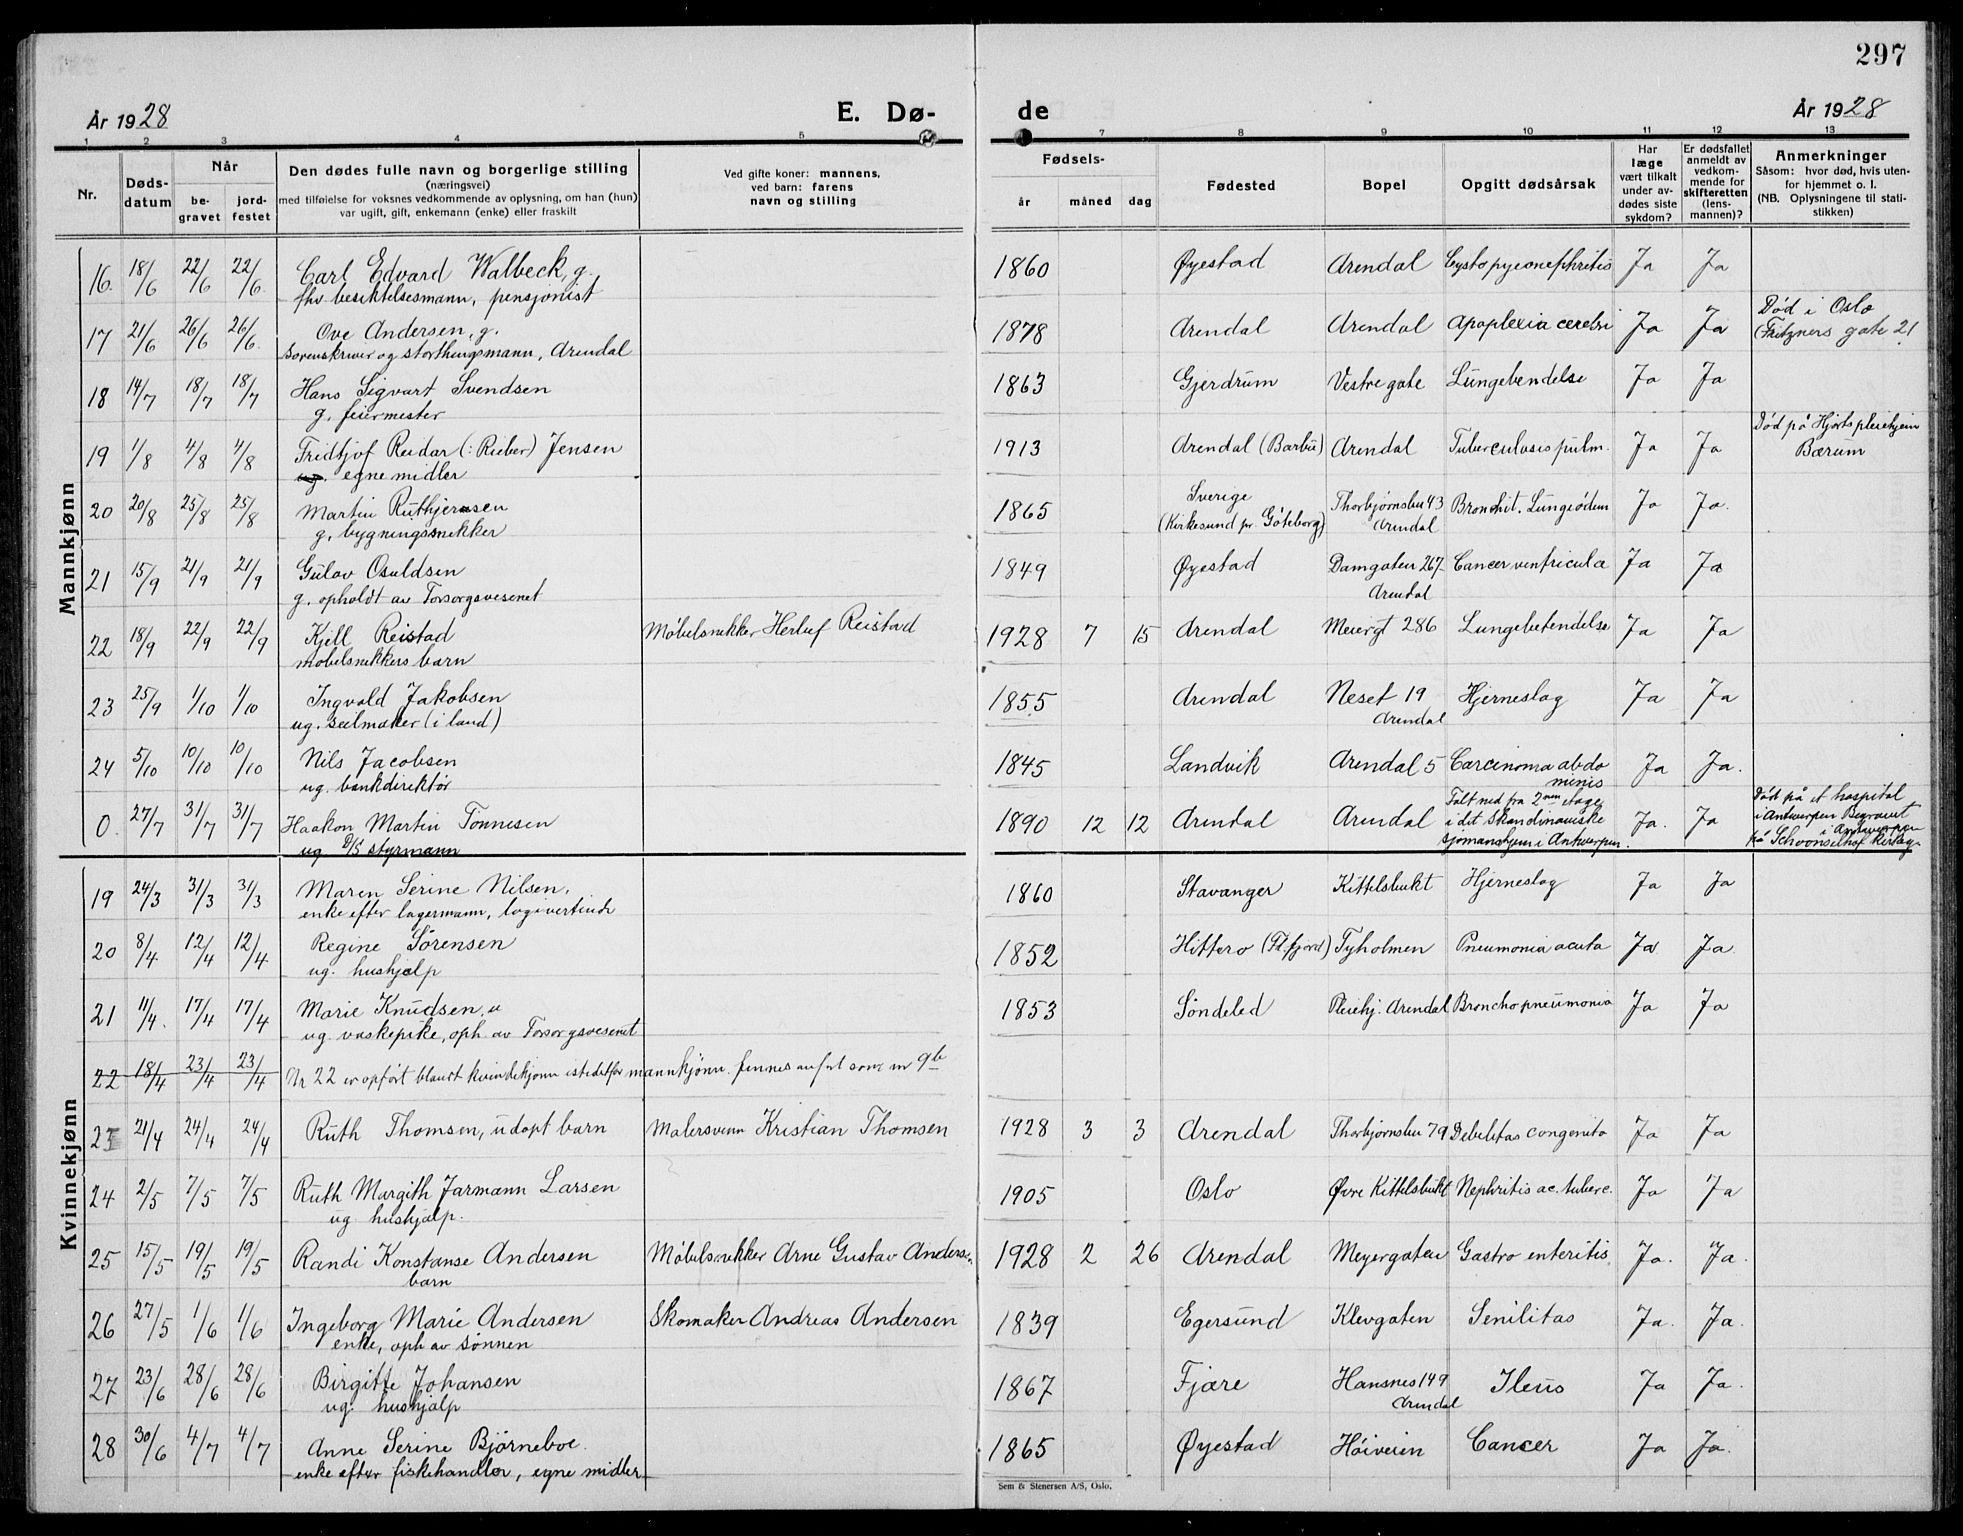 297
År 1928 E. Dø- de År 1928
1 2 3 4 5 7 8 9 10 11 12 13
Nr. Døds-datum Når be-gravet jord-festet
Den dødes fulle navn og borgerlige stilling
(næringsvei)
med tilføielse for voksnes vedkommende av oplysning, om han (hun)
var ugift, gift, enkemann (enke) eller fraskilt
Ved gifte koner: mannens,
ved barn: farens
navn og stilling
Fødsels-
år måned dag
Fødested
Bopel
Opgitt dødsårsak
Har læge vært tilkalt under av-dødes siste sykdom?
Er dødsfallet anmeldt av vedkom-mende for skifteretten (lens-mannen)?
Anmerkninger
Såsom: hvor død, hvis uten-
for hjemmet o. l.
(NB. Oplysningene til stati-
stikken)
Mannkjønn
16. 18/6 22/6 22/6 Carl Edvard Walbeck, g. 1860 Øyestad Arendal Cystopyeonephritis Ja Ja
fhv. besiktelsesmann, pensjonist
17 21/6 26/6 26/6 Ove Andersen, g. 1878 Arendal Arendal Apoplexia cerebri Ja Ja Død i Oslo
Sorenskriver og storthingsmann, Arendal (Fritzners gate 21
18 14/7 18/7 18/7 Hans Sigvart Svendsen 1863 Gjerdrum Vestre gate Lungebendelse Ja Ja
g. feiermester
19 1/8 4/8 4/8 Fridtjof Reidar (: Rieber) Jensen 1913 Arendal (Barbu) Arendal Tuberculosis pulm. Ja Ja Død på Hjorts pleiehjem
ug. egne midler Bærum
20 20/8 25/8 25/8 Martin Ruthjersen 1865 Sverige Thorbjørnsbu 43 Bronchit. Lungeödem Ja Ja.
g. bygningssnekker (Kirkesund pr. Göteborg) Arendal
21 15/9 21/9 21/9 Gulov Osuldsen 1849 Øyestad Damgaten 267 Cancer ventricula Ja Ja
g. opholdt av Forsorgsvesenet Arendal
22 18/9 22/9 22/9 Kjell Reistad Møbelsnekker Herluf Reistad 1928 7 15 Arendal Meiergt 286 Lungebetendelse Ja Ja
møbelsnekkers barn
23 25/9 1/10 1/10 Ingvald Jakobsen 1855 Arendal Neset 19 Hjerneslag Ja Ja
ug. seilmaker (i land) Arendal
24 5/10 10/10 10/10 Nils Jacobsen 1845 Landvik Arendal 5 Carcinoma abdo Ja Ja.
ug. bankdirektør minis
0. 27/7 31/7 31/7 Haakon Martin Tønnesen 1890 12 12 Arendal Arendal Falt ned fra 2nen etage Ja. Ja Død på et hospital
ug D/S styrmann i det skandinaviske i Antwerpen Begravet
sjømanshjem i Antwerpen. på Schoonselhof kirkeg. i Antwerpen
Kvinnekjønn
19 24/3 31/3 31/3 Maren Serine Nilsen. 1860 Stavanger Kittelsbukt Hjerneslag Ja Ja
enke efter lagermann, logivertinde
20 8/4 12/4 12/4 Regine Sørensen 1852 Hitterø (Fl.fjord) Tyholmen Pneumonia acuta Ja Ja.
ug. hushjelp
21 11/4. 17/4 17/4 Marie Knudsen 1853 Søndeled Pleiehj. Arendal Bronchopneumonia Ja Ja
ug. vaskepike, oph av Forsorgsvesenet
22 18/4 23/4 23/4 Nr 22 er opført blandt kvindekjønn istedetfor mannkjønn. finnes anført som nr 9b
23 21/4 24/4 24/4 Ruth Thomsen, udøpt barn Malersvenn Kristian Thomsen 1928 3 3 Arendal Thorbjørnsbu 79 Debilitas congenita Ja Ja
24 2/5 7/5 7/5 Ruth Margith Jarmann Larsen 1905 Oslo Øvre Kittelsbukt Nephritis ac. tuberc. Ja Ja
ug. hushjelp.
25 15/5 19/5 19/5 Randi Konstanse Andersen Møbelsnekker Arne Gustav Andersen 1928 2 26 Arendal Meyergaten Gastro enteritis Ja. Ja.
barn
26 27/5 1/6 1/6 Ingeborg Marie Andersen Skomaker Andreas Andersen 1839 Egersund Klevgaten Senilitas Ja. Ja.
enke, oph av sønnen
27 23/6 28/6 28/6 Birgitte Johansen 1867 Fjære Hansnes 149 Ileus Ja Ja.
ug. hushjelp Arendal
28 30/6 4/7 4/7 Anne Serine Bjørneboe. 1865 Øyestad Høiveien Cancer Ja Ja.
enke efter fiskehandler, egne midler
Sem & Stenersen A/S, Oslo.